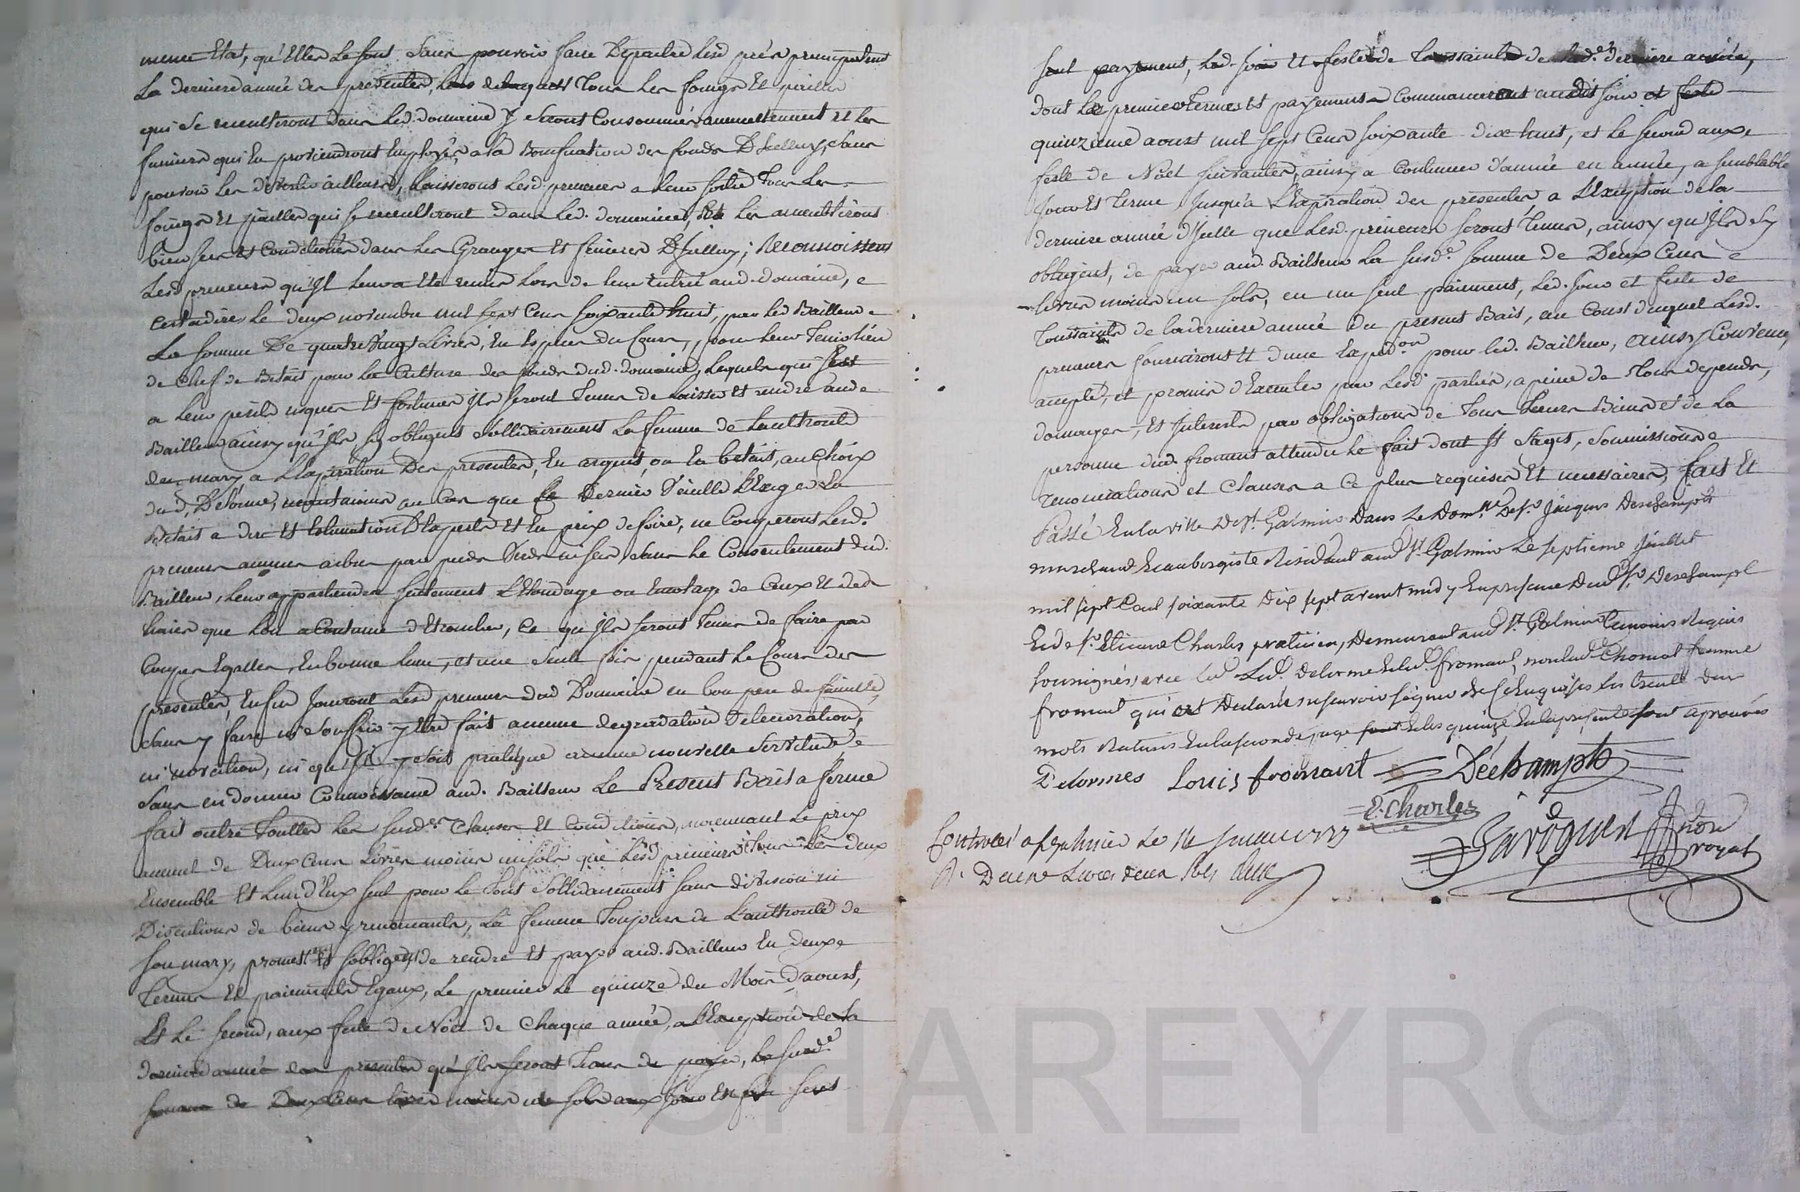 meme Etat, qu'Elles le sont sans pouvoir faire Depaitre lesd. prés principalement
La derniere année des presentes, tous les foings Et pailles
qui se recuilliront dans led. domaine y seront Consommés annuellement et les
fumiers qui En proviendront Employés a la Bonification des fonds D'Icelluy, sans
pouvoir les divertir ailleurs, Laisseront lesd. preneurs a leur sortie Tous les
foings Et pailles qui se recuilliront dans led. domaine,
bien secs Et Conditionés dans les Granges Et fenieres D'Icelluy; Reconnoissent
Lesd. preneurs qu'Il leur a Eté remis lors de leur Entrée aud. domaine, c
Est adire le deux novembre mil sept Cens soixante huit, par led. Bailleur
La somme De quatre vingt Livres, En Espèces du Cours, pour leur Tenir lieu
de Chef de Betail pour la Culture des fonds dud. domaine, Lequel
a leur péril risques Et fortunes Ils seront Tenus de Laisser Et rendre aud.
Bailleur ainsy qu'Ils s'y obligent Sollidairement La femme de Lauthorité
de mary a L'Expiration Des presentes, En argent, ou En betail, au Choix
dud. Delorme, neantmoins au Cas que Ce Dernier veuille L'Exiger En
Betail a dire Et Estimation D'Experts Et En prix de foire, ne Couperont Lesd.
preneurs aucuns arbres par pieds verds ni secs, sans Le Consentement dud.
Bailleur, Leur appartiendra seulement L'Elondage ou Emondage de Ceux Et des
haies que L'on a Coutume d'Etroncher, Ce qu'Ils seront Tenus de faire par
Coupes Egalles, En bonne lune, et une seule fois pendant Le Cours des
presentes, Enfin Jouiront Lesd. preneurs dud. Domaine en bon pere de famille,
sans y faire ni souffrir y Etre fait aucune degradation Deterioration,
ni novation, ni qu'Il y soit pratiqué aucune nouvelle Servitude
sans en donner Connoissance aud. Bailleur Le Present Bail a ferme
fait outre Touttes Les susd. Clauses Et Conditions, moiennant Le prix
annuel de Deux Cens Livres moins un sols que Lesd. preneurs Tous Les deux
Ensemble Et L'un d'Eux seul pour Le Tout Sollidairement sans division ni
Discution de biens y renoncants, La femme Toujours de L'authorité de
son mary, promettent Et s'obligent de rendre Et payer aud. Bailleur En deux
Termes Et paiements Egaux, Le premier Le quinze du Mois d'aoust,
Et Le second, aux feste de Noel de Chaque année, a L'Exception de la
derniere année des presentes qu'Ils seront Tenus de payer, La susd.
somme de Deux Cens livres moins un sols aux Jour Et feste
seul payement, Led. jour Et feste de Toussaints de lad. derniere année,
dont Le premier Terme Et payement Commancera audit jour et feste
quinzieme aoust mil sept Cens soixante dix huit, et le second aux
feste de Noël suivantes, ainsy a Continuer d'année en année, a semblable
Jour Et Terme Jusqu'a L'Expiration des presentes a L'Exception de la
derniere année d'Icelle que Lesd. preneurs seront Tenus, ainsy qu'Ils s'y
obligent, de payer aud. Bailleur La susd. somme de Deux Cens
Livres moins un sols, en un seul paiement, Led. Jour et feste de
Toussaints de la derniere année du present Bail, au Coust duquel Lesd.
preneurs fourniront Et d'une Exped.on pour led. Bailleur, ainsy Convenu,
accepté, et promis d'Executer par Lesd. parties, a peine de Tous depends,
domages, Et Interests par obligations de Tous Leurs Biens et de La
personne dud. fromant attendu Le fait dont Il s'agit, soumissions
renonciations et Clauses a Ce plus requises Et necessaires, fait Et
Passé En la ville De St Galmier Dans Le Dom.le De Sr Jacques Deschampts
marchand Et aubergiste Residant aud. St Galmier Le septieme Juillet
mil sept Cent soixante Dix sept avant midy En presance Dud. Sr Deschampt
Et de Sr Etienne Charles praticien, Demeurant aud. St Galmier Temoins Requis
soussignés avec led. Sr Delorme Et led. fromant, non lad. Chomat femme
fromant qui a Declaré ne savoir signer de ce Enquises Les
mots Raturés En la seconde page Et les quinze En la presente sont aprouvés
Delormes Louis fromant Déchampts
E. Charles
Javogues Nore royal
Controlé a St Galmier le 14 Juillet 1777
R. Deux Livres deux sols
JEAN CHAREYRON